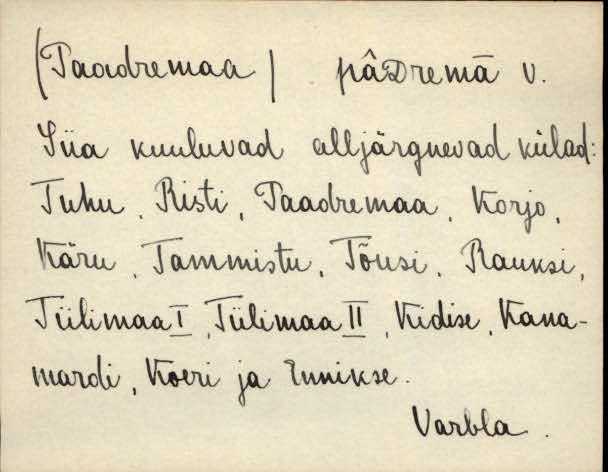 (Paadremaa) pâDremā v.
Siia kuuluvad alljärgnevad külad:
Tuhu, Risti, Paadremaa, Korjo,
Käru, Tammistu, Tõusi, Rauksi,
Tiilimaa I, Tiilimaa II, Kidise, Kana-
mardi, Koeri ja Ennikse.
Varbla.